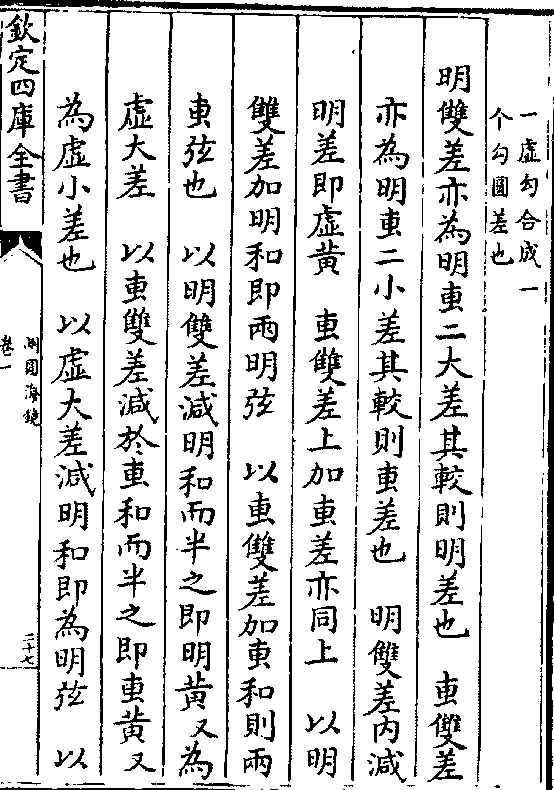 一虚勾合成一
个勾圓差也
明雙差亦為明叀二大差其較則明差也　叀雙差
亦為明叀二小差其較則叀差也　明雙差内減
明差即虚黄　叀雙差上加叀差亦同上　以明
雙差加明和即兩明弦　以叀雙差加叀和則兩
叀弦也　以明雙差減明和而半之即明黄又為
虚大差　以叀雙差減於叀和而半之即叀黄又
為虚小差也　以虚大差減明和即為明弦　以
欽定四庫全書
測圓海鏡
卷一
三十七